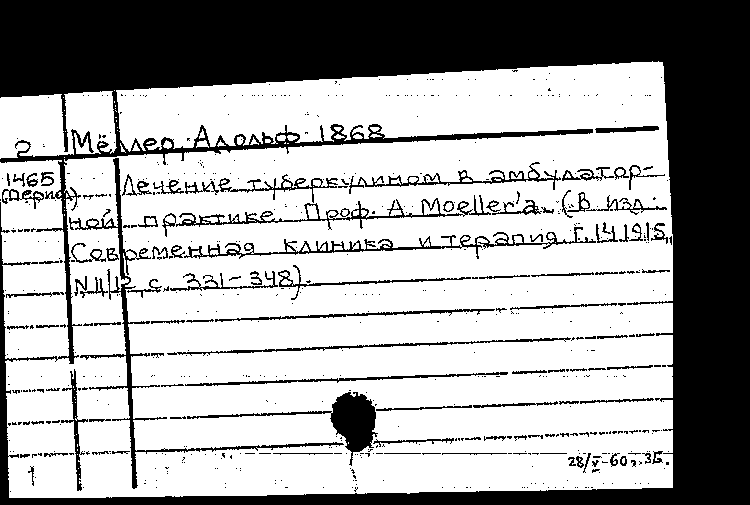 2 Мёллер, Адольф 1868
1465 Лечение туберкулином в амбулатор-
(Период) ной практике Проф. А. Moeller'a. (В изд.:
Современная клиника и терапия. Г. 14 1915,
N 11/12, с. 331-348).
1
28/V-60г. ЗБ.